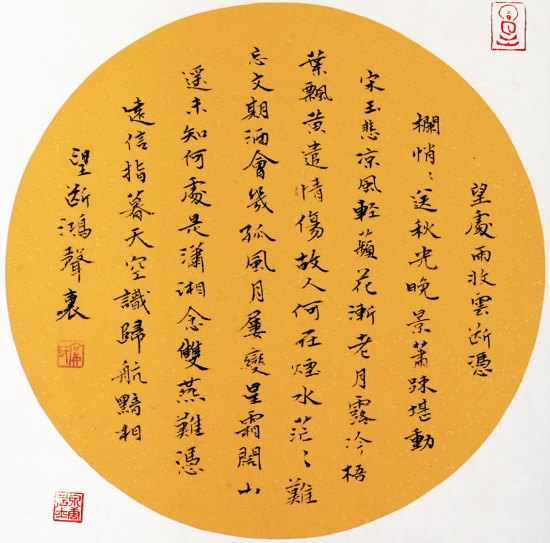 望處雨收雲断憑
欄悄〻送秋光晚景蕭踈堪動
宋玉悲凉風輕蘋花漸老月露冷梧
葉飄黄遣情傷故人何在煙水茫〻難
忘文期酒會幾孤風月屢變星霜闊山
遥未知何處是瀟湘念雙燕難憑
遠信指暮天空識歸航黯相
望断鴻聲裏